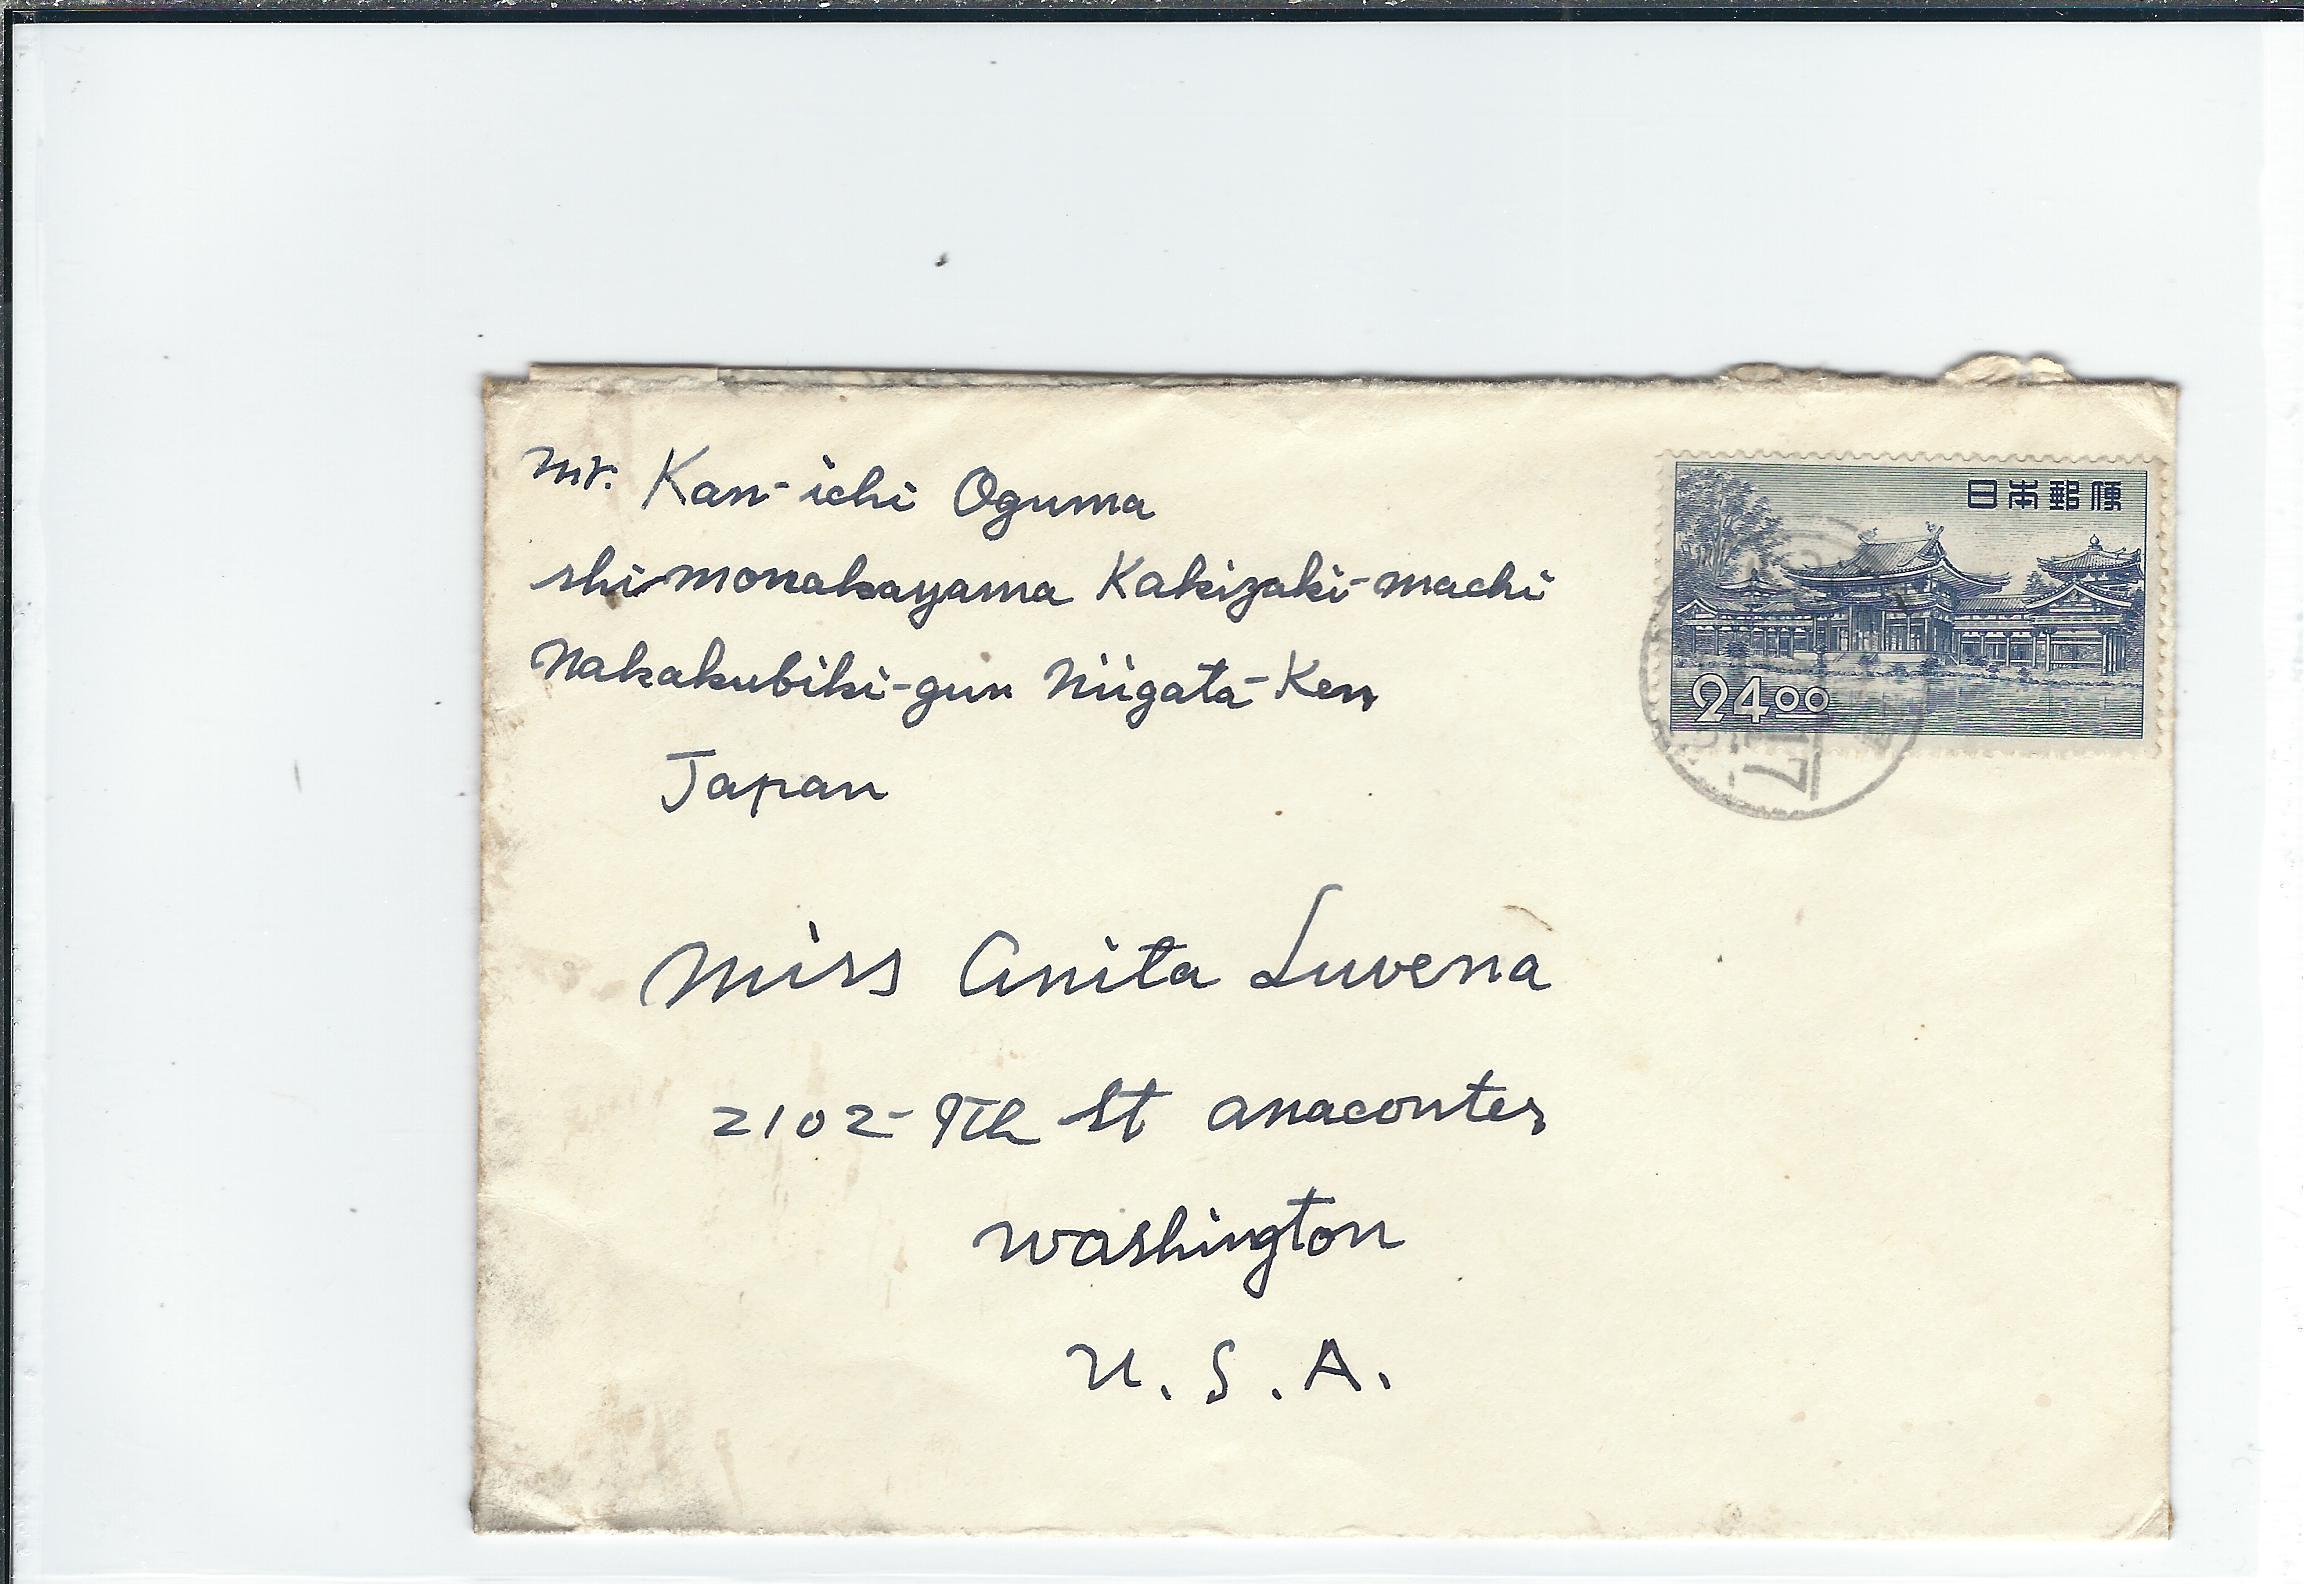 Mr. Kan-ichi Oguma
shimonakayama Kakizaki-machi
Nakakubiki-gun Niigata-Ken
Japan
日本郵便
24.00
Miss Anita Luvena
2102-9th St anacortes
Washington
U.S.A.